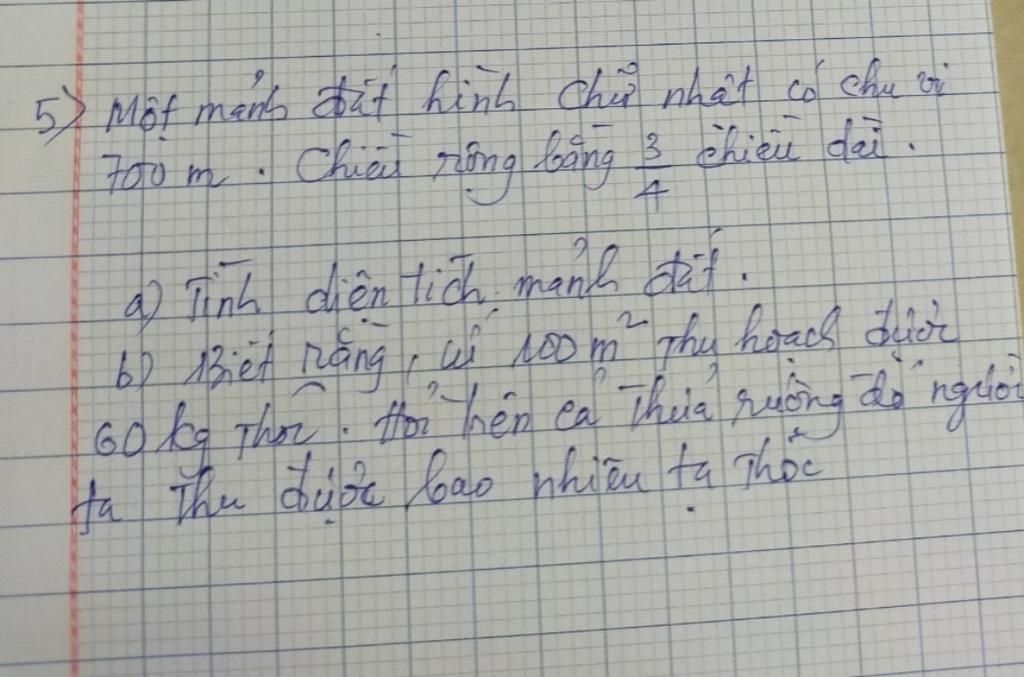 5) Một mảnh đất hình chữ nhật có chu vi
700 m. Chiều rộng bằng 3/4 chiều dài.
a) Tính diện tích mảnh đất.
b) Biết rằng, cứ 100 m² thu hoạch được
60 kg thóc. Hỏi trên cả thửa ruộng đó người
ta thu được bao nhiêu tạ thóc